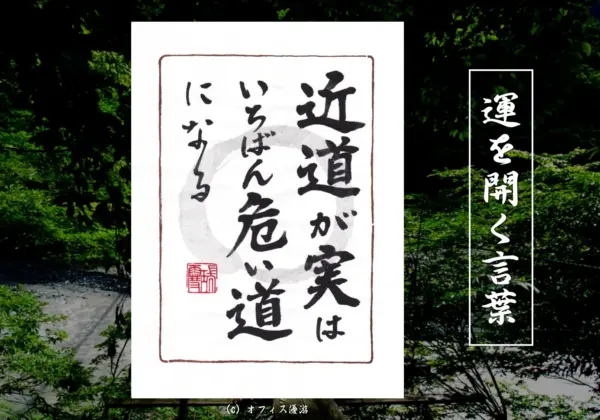 近道が実は
いちばん危い道
になる
運を開く言葉
(c) オフィス優游